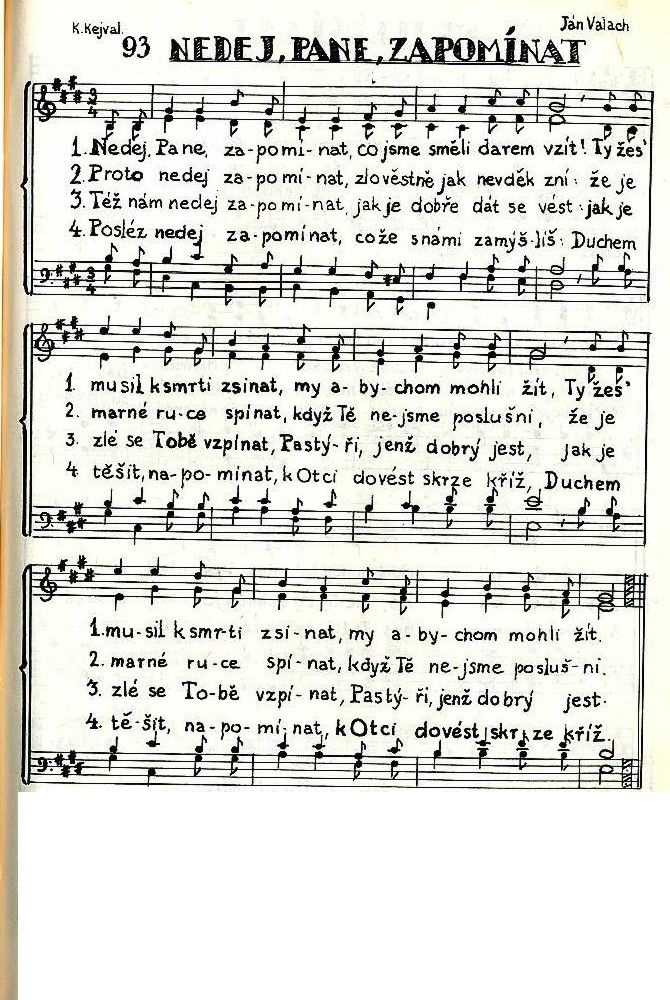 K. Kejval.
Ján Valach
93 NEDEJ, PANE, ZAPOMÍNAT
3/4
1. Nedej, Pane, za-pomí-nat, co jsme směli darem vzít! Ty žes'
2. Proto nedej za-pomí-nat, zlověstně jak nevděk zní: že je
3. Též nám nedej za-pomí-nat, jak je dobře dát se vést: jak je
4. Posléz nedej za-pomínat, cože s námi zamýš-líš: Duchem
3/4
1. musil k smrti zsínat, my a-by-chom mohli žít, Ty žes'
2. marné ru-ce spínat, když Tě ne-jsme poslušni, že je
3. zlé se Tobě vzpínat, Pastý-ři, jenž dobrý jest, jak je
4. těšit, na-po-mínat, k Otci dovést skrze kříž, Duchem
1. mu-sil k smr-ti zsí-nat, my a-by-chom mohli žít.
2. marné ru-ce spí-nat, když Tě ne-jsme posluš-ni.
3. zlé se To-bě vzpí-nat, Pastý-ři, jenž dobrý jest.
4. tě-šit, na-po-mí-nat, k Otci dovést skr-ze kříž.